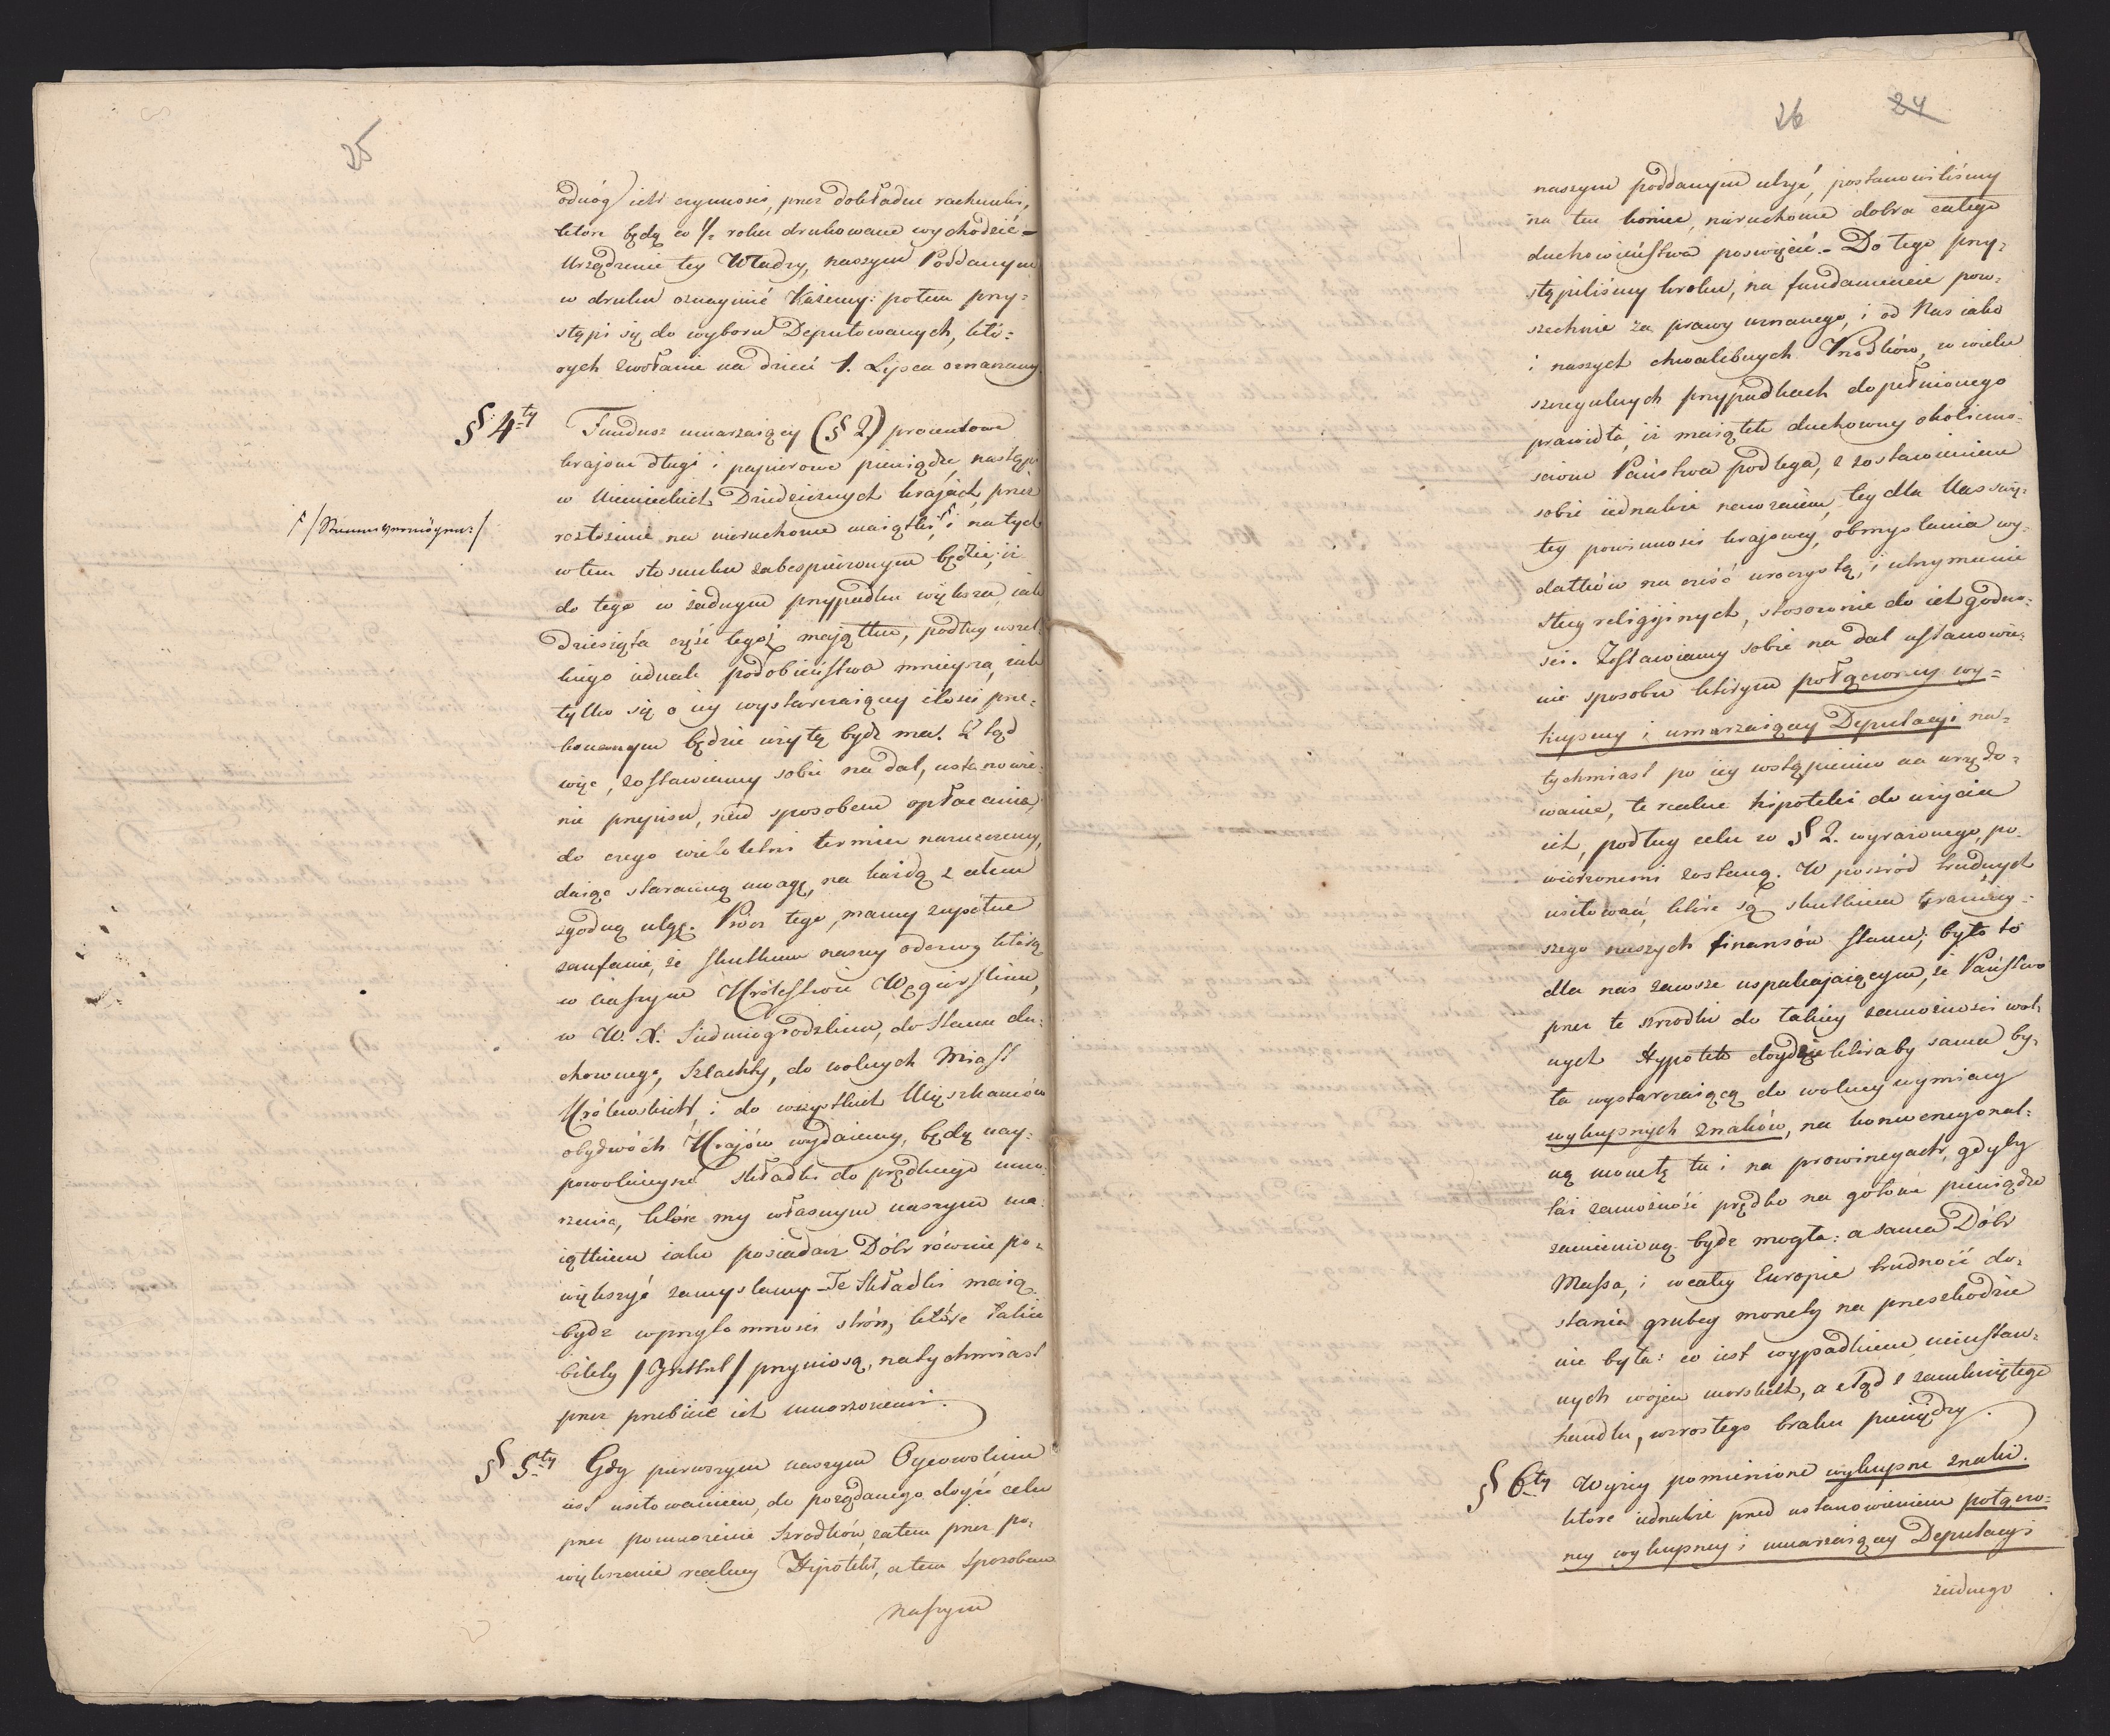 25
odnóg ich czynności, przez dokładne rachunki,
które będą co 1/2 roku drukowane wychodzić –
Urządzenie tey Władzy, naszym Poddanym
w druku oznaymić Każemy: potem przy=
stąpi się do wyboru Deputowanych, któ=
rych zwołanie na dzień 1. Lipca oznaczamy.
§ 4ty Fundusz umarzaiący (§ 2) procentowe
kraiowe długi i papierowe pieniądze, następi
w Niemieckich Dziedzicznych kraiach, przez
rozłożenie na nieruchome maiątki i na tych
/Stammvermögen:/
w tem stosunku zabespieczonym będzie, iż
do tego w żadnym przypadku większa, iak
dziesiąta część tegoż maiątku, podług wszel=
kiego iednak podobieństwa mnieysza, iak
tylko się o iey wystarczaiącey ilości prze=
konanym będzie użytą bydź ma. Ztąd
więc, zostawiamy sobie na dal, ustanowie=
nie przepisu, nad sposobem opłacania,
do czego wieloletni termin naznaczemy,
daiąc staranną uwagę, na każdą z celem
zgodną ulgę. Prócz tego, mamy zupełne
zaufanie, że skutkiem naszey odezwy którą
w naszym Królestwie Węgierskim,
w W. X. Siedmiogrodzkim, do Stanu du=
chownego, Szlachty, do wolnych Miast
Królewskich, i do wszystkich Mięszkańców
obydwóch Kraiów wydaiemy, będą nay=
powolnieysze składki do prędkiego umo=
rzenia, które my własnym naszym ma=
iątkiem iako posiadacz Dóbr równie po=
większyć zamyślamy – Te Składki maią
bydź w przytomności stron, które takie
bilety /Zettel/ przyniosą, natychmiast
przez przebicie ich umorzonemi.
§ 5ty Gdy pierwszym naszym Oycowskim
iest usiłowaniem, do pożądanego doyść celu
przez pomnożenie Szrodków, zatem przez po=
większenie realney Hypoteki, a tem sposobem
naszym
26 24
naszym poddanym ulżyć, postanowiliśmy
na ten koniec, nieruchome dobra całego
duchowieństwa poświęcić. – Do tego przy=
stąpiliśmy kroku, na fundamencie pow=
szechnie za prawy uznanego, i od Nas iako
i naszych chwalebnych Przodków, w wielu
szczegulnych przypadkach dopełnionego
prawidła, iż maiątek duchowny okoliczno=
ściom Państwa podlega, z zostawieniem
sobie iednakże nawzaiem, tey dla Nas świę=
tey powinności kraiowey, obmyślania wy=
datków na cześć uroczystą, i utrzymanie
sług religiynych, stosownie do ich godno=
ści. Zostawiamy sobie na dal ustanowie=
nie sposobu którym połączoney wy=
kupney i umarzaiącey Deputacyi na=
tychmiast po iey wstąpieniu na urzędo=
wanie, te realne hipoteki do użycia
ich, podług celu w § 2. wyrażonego, po=
wierzonemi zostaną. W pośród trudnych
usiłowań, które są skutkiem teraźniey=
szego naszych finansów stanu; było to
dla nas zawsze uspakajaiącym, że Państwo
przez te szrodki do takiey zamożności wol=
nych Hypotek doydzie któraby sama by=
ła wystarczaiącą do wolney wymiany
wykupnych znaków, na konwencyonal=
ną monetę tu i na prowincyach, gdyby
taż zamożność prędko na gotowe pieniądze
zamienioną bydź mogła: a sama Dóbr
Massa, i w całey Europie trudność do=
stania grubey monety na przeszkodzie
nie była: co iest wypadkiem nieustan=
nych wojen morskich, a ztąd z zamkniętego
handlu, wzrosłego braku pieniędzy.
§ 6ty Wyżey pomienione wykupne znaki.
które iednakże przed ustanowieniem połączo=
ney wykupney i umarzaiącey Deputacyi
żadnego